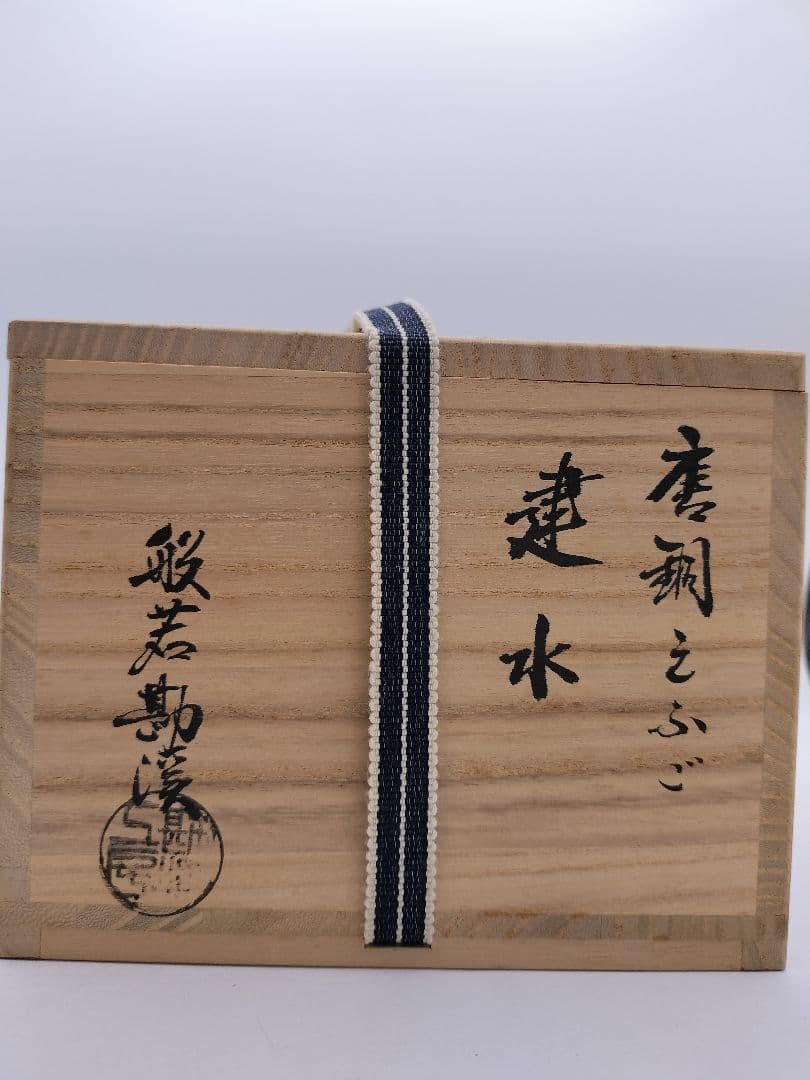 唐銅えふご
建水
般若勘溪